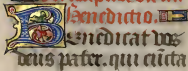 Benedictio.
Benedicat vos
deus pater. qui cuncta